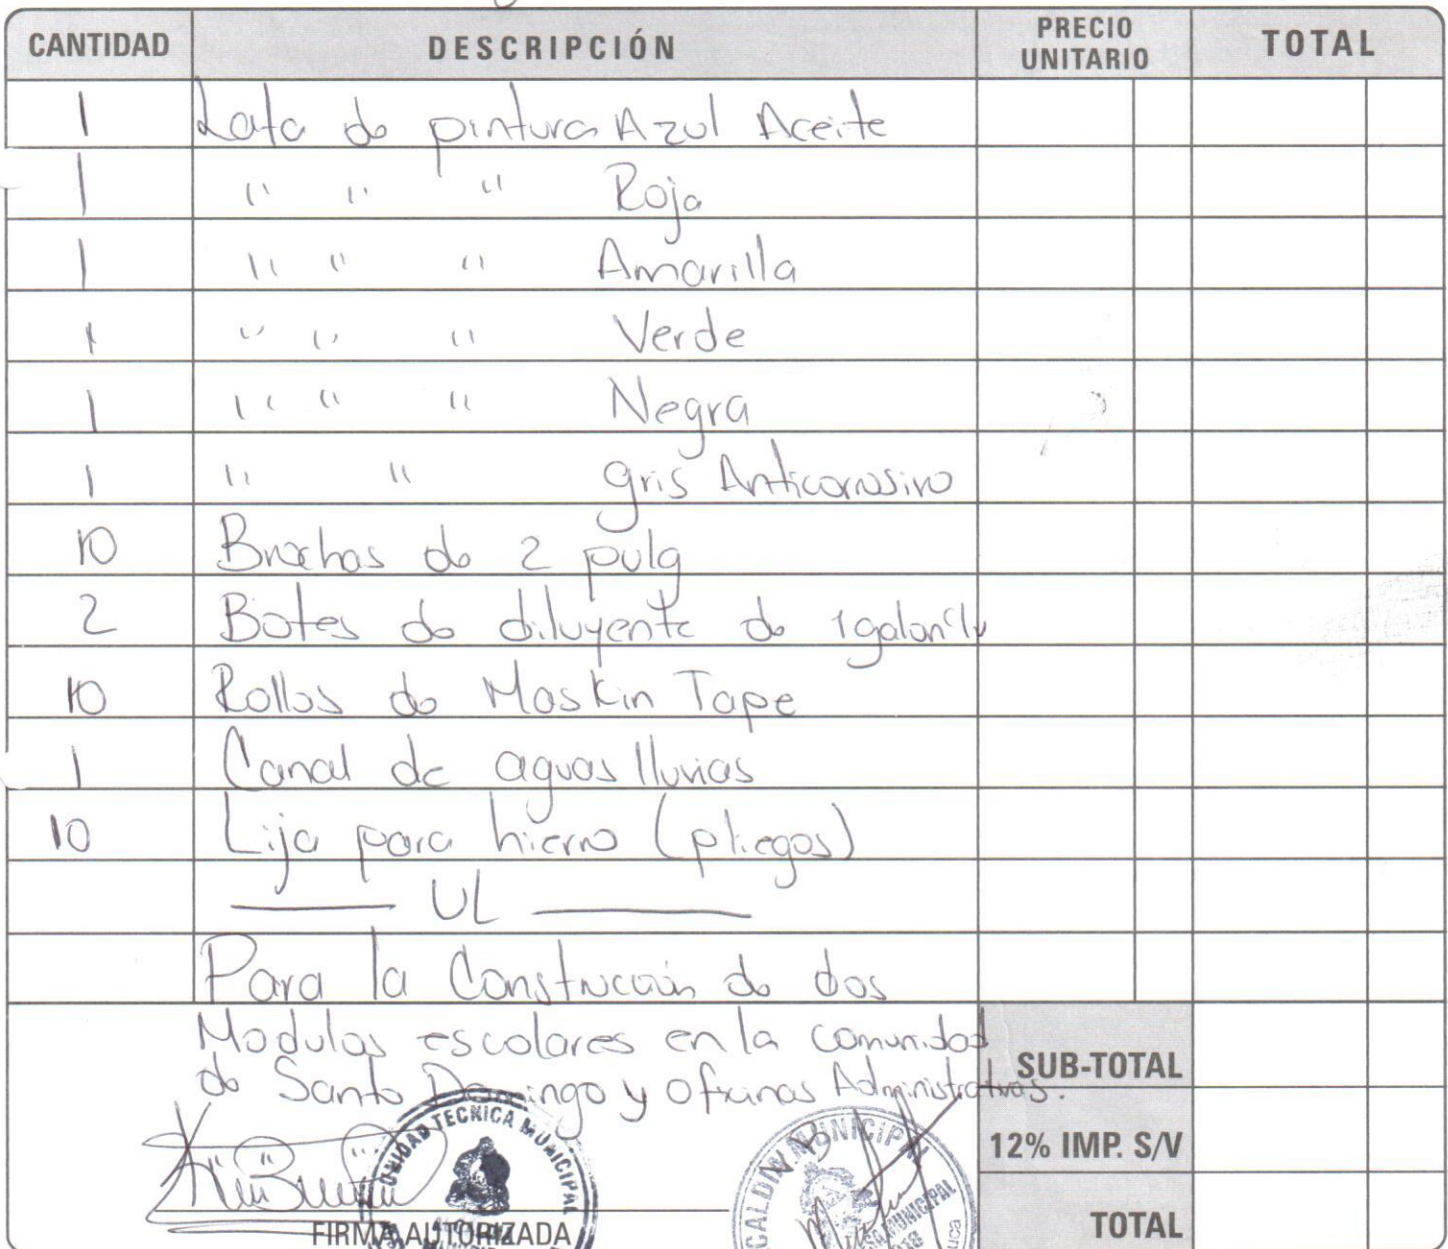 CANTIDAD DESCRIPCIÓN PRECIO UNITARIO TOTAL
1 Lata de pintura Azul Aceite
1 " " " Roja
1 " " " Amarilla
1 " " " Verde
1 " " " Negra
1 " " gris Anticorrosivo
10 Brochas de 2 pulg
2 Botes de diluyente de 1galon c/u
10 Rollos de Maskin Tape
1 Canal de aguas lluvias
10 Lija para hierro (pliegos)
UL
Para la Construcción de dos
Modulos escolares en la comunidad
de Santo Domingo y Oficinas Administrativas.
SUB-TOTAL
12% IMP. S/V
TOTAL
UNIDAD TECNICA MUNICIPAL
MUNICIPAL
FIRMA AUTORIZADA